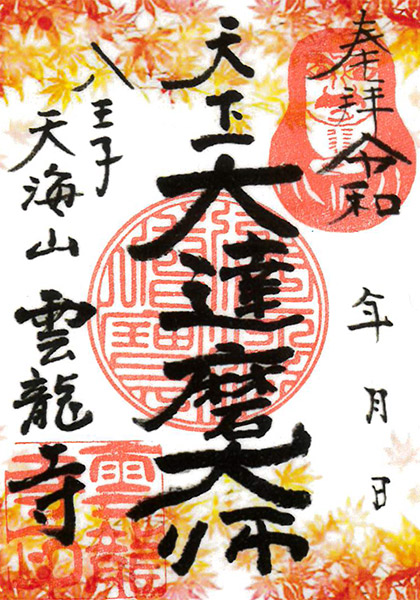 奉拝令和
年月日
天下一
大達磨大師
八王子
天海山雲龍寺
雲龍寺印